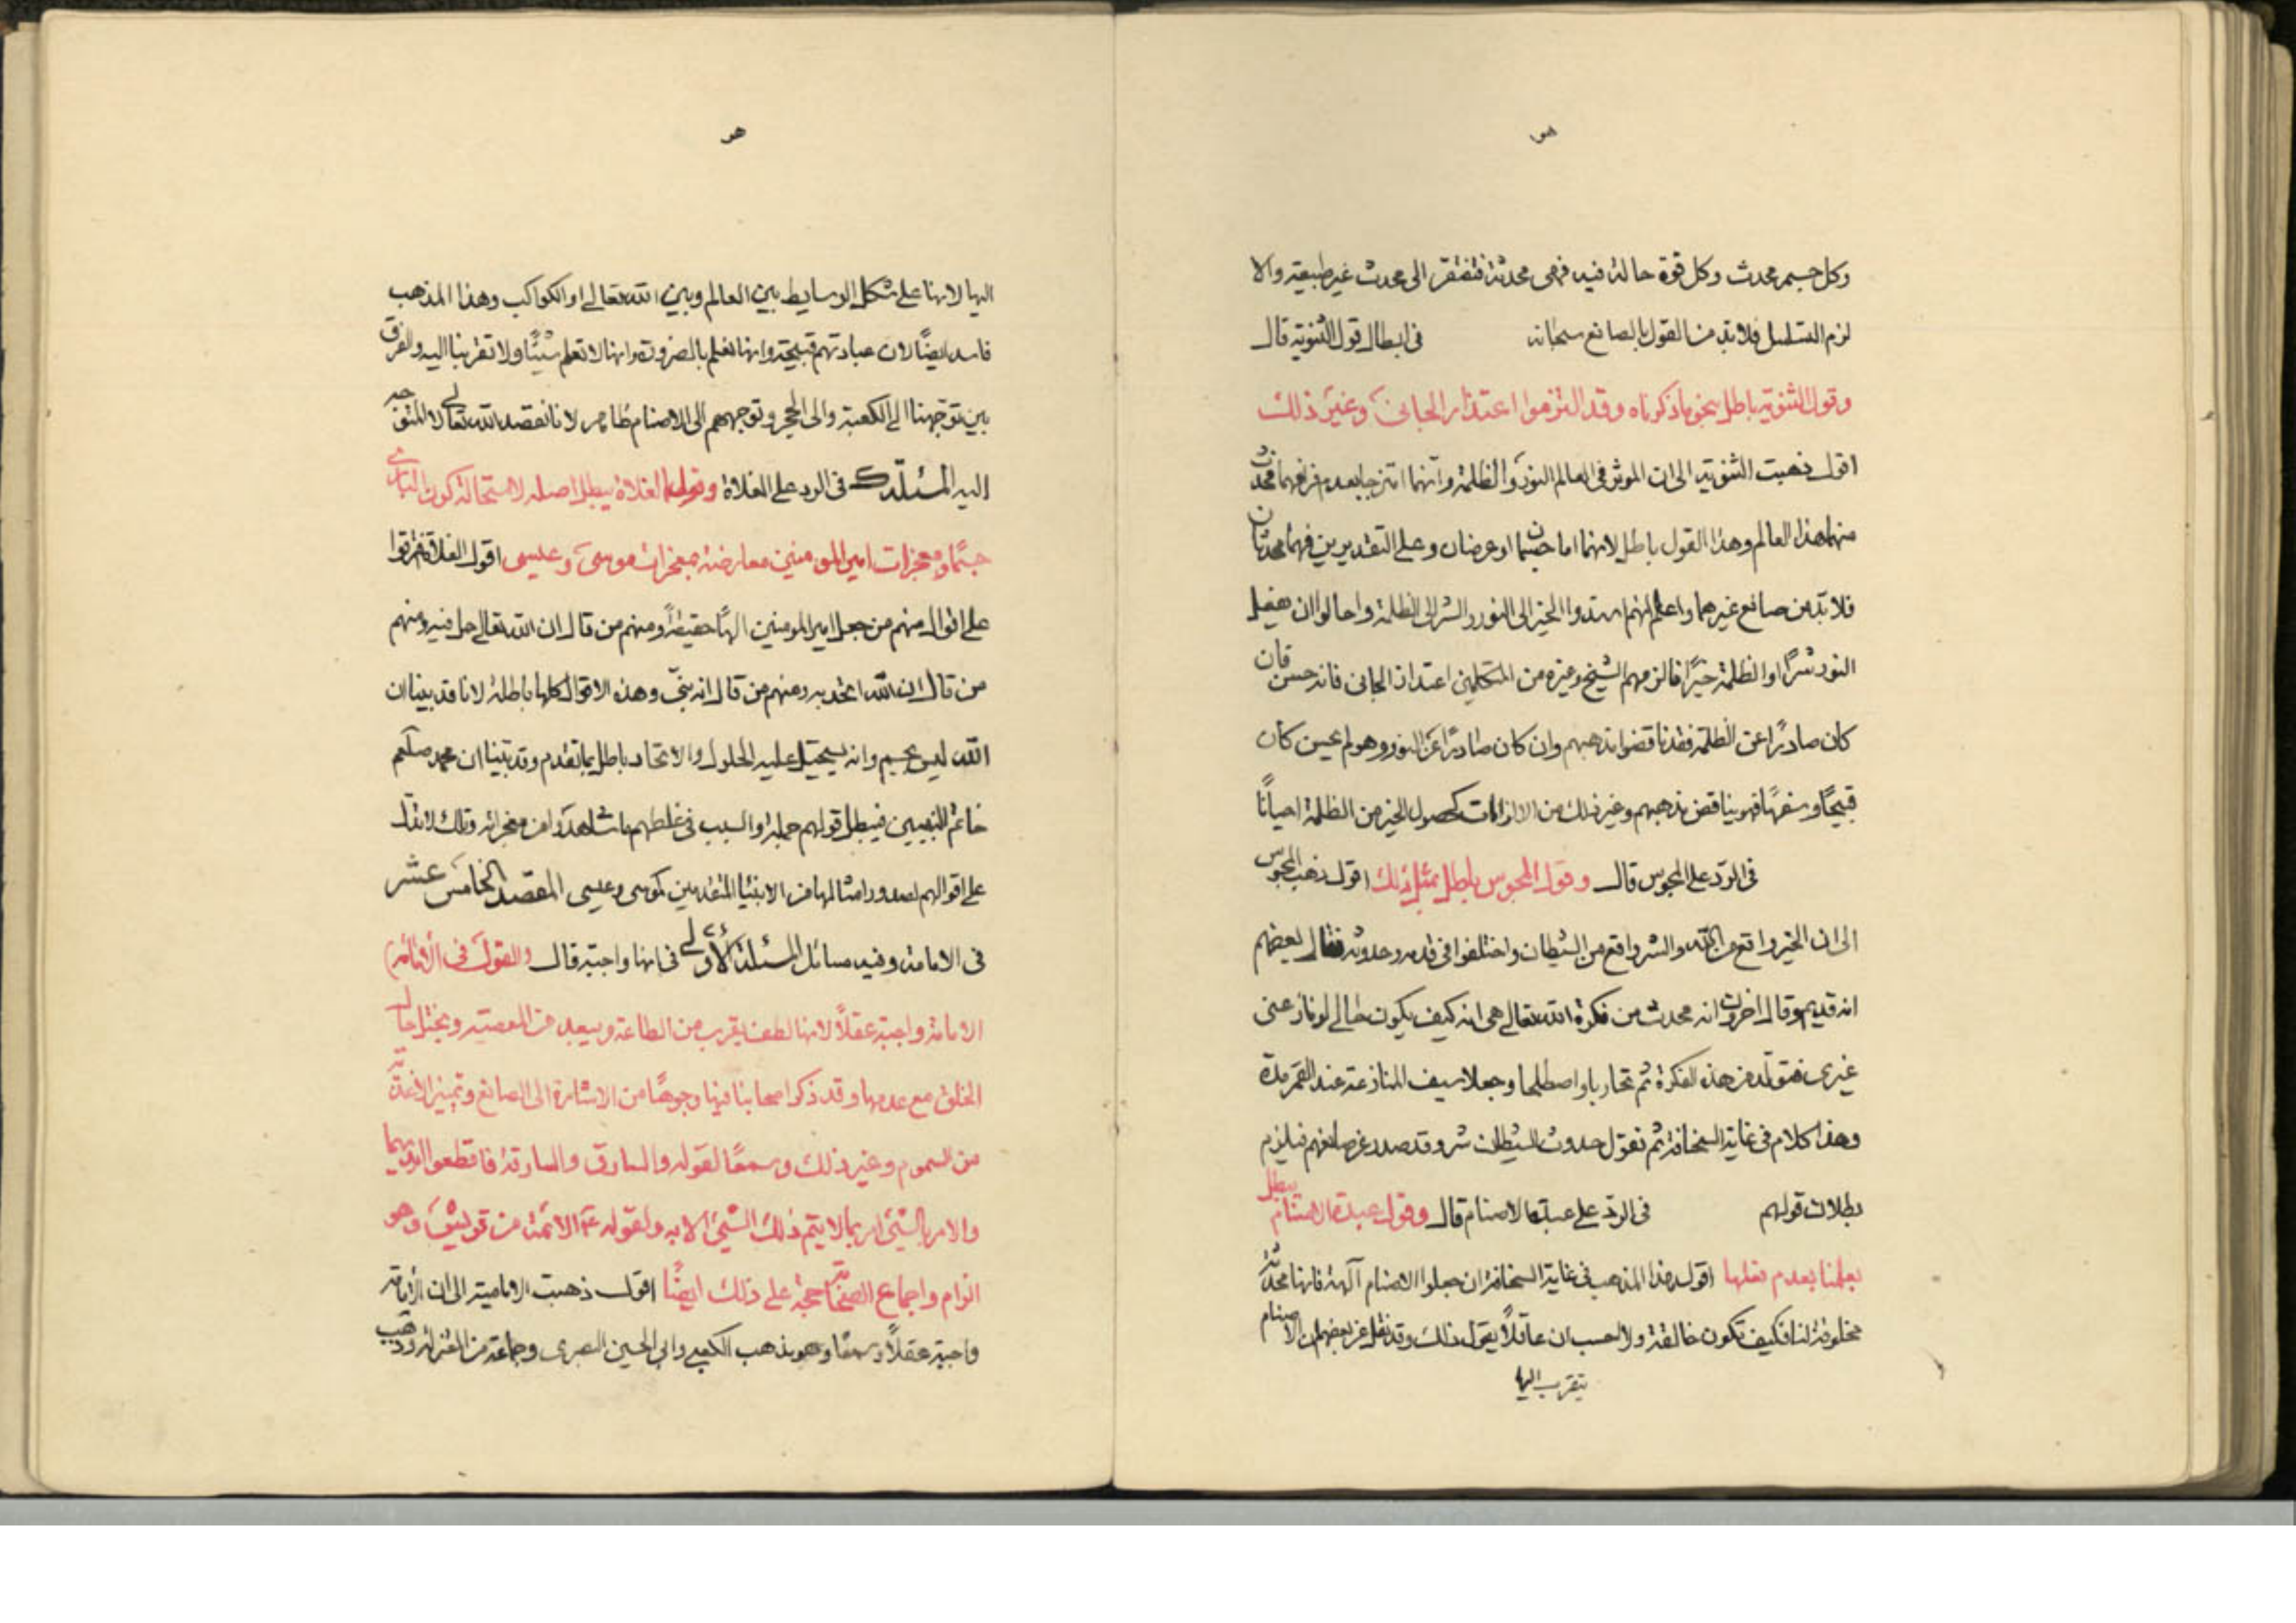 هو
وكل جسم محدث وكل قوة حالة فيه فهى محدثة فتفتقر الى محدث غير طبيعته والا
لزم التسلسل فلا بد من القول بالصانع سبحانه فى ابطال قول الثنوية قال
وقول الثنوية باطل بنحو ما ذكرناه وقد التزموا اعتذار الجانى وغير ذلك
اقول ذهبت الثنوية الى ان الموثر فى العالم النور والظلمة وانهما امتزجا بعدم فراغهما فحدث
منهما هذا العالم وهذا القول باطل لانهما اما جسمان او عرضان وعلى التقديرين فهما محدثان
فلا بد من صانع غيرهما واعلم انهم اسندوا الخير الى النور والشر الى الظلمة واحالوا ان يفعل
النور شرًا او الظلمة خيرًا فالزمهم الشيخ وغيره من المتكلمين اعتذار الجانى فانه حسن فان
كان صادرًا عن الظلمة فقد ناقضوا مذهبهم وان كان صادرًا عن النور وهو لم يجن كان
قبيحًا وسفهًا فهو يناقض مذهبهم وغير ذلك من الالزامات كحصول الخير من الظلمة احيانًا
فى الرد على المجوس قال وقول المجوس باطل بمثل ذلك اقول ذهب المجوس
الى ان الخير واقع من الله والشر واقع من الشيطان واختلفوا فى قدمه وحدوثه فقال بعضهم
انه قديم وقال اخرون انه محدث من فكرة الله تعالى هى انه كيف يكون حالى لو نازعنى
غيرى فتولد من هذه الفكرة ثم تحاربا واصطلحا وجعلا سيف المنازعة عند القمر مدة
وهذا كلام فى غاية السخافة ثم نقول حدوث الشيطان شر وقد صدر عن صانعهم فيلزم
بطلان قولهم فى الرد على عبدة الاصنام قال وقول عبدة الاصنام يبطل
بعلمنا بعدم فعلها اقول هذا المذهب فى غاية السخافة ان جعلوا الاصنام آلهة فانها محدثة
مخلوقة لنا فكيف تكون خالقة ولا احسب ان عاقلًا يقول ذلك وقد نقل عن بعضهم ان الاصنام
يتقرب اليها
هو
اليها لانها على شكل الوسايط بين العالم وبين الله تعالى او الكواكب وهذا المذهب
فاسد ايضًا لان عبادتهم قبيحة وانها نعلم بالضرورة انها لا تعلم شيئًا ولا تقربنا اليه والفرق
بين توجهنا الى الكعبة والى الحجر وتوجههم الى الاصنام ظاهر لانا نقصد الله تعالى لا المتوجه
اليه المسئلة فى الرد على الغلاة وقول الغلاة يبطل اصله لاستحالة كون البارى
جسمًا ومعجزات امير المومنين معارضة بمعجزات موسى وعيسى اقول الغلاة افترقوا
على اقوال منهم من جعل امير المومنين الهًا حقيقة ومنهم من قال ان الله تعالى حل فيه ومنهم
من قال ان الله اتحد به ومنهم من قال انه نبى وهذه الاقوال كلها باطلة لانا قد بينا ان
الله ليس بجسم وانه يستحيل عليه الحلول والاتحاد باطل بما تقدم وقد بينا ان محمد صلعم
خاتم النبيين فيبطل قولهم جملة والسبب فى غلطهم ما شاهدوا من معجزاته وتلك لا تدل
على اقوالهم لصدور امثالها من الانبياء المتقدمين كموسى وعيسى المقصد الخامس عشر
فى الامامة وفيه مسائل المسئلة الاولى فى انها واجبة قال والقول فى الامامة
الامامة واجبة عقلًا لانها لطف يقرب من الطاعة ويبعد من المعصية ويختل حال
الخلق مع عدمها وقد ذكر اصحابنا فيها وجوهًا من الاشارة الى الصانع وتمييز الاغذية
من السموم وغير ذلك وسمعًا لقوله والسارق والسارقة فاقطعوا ايديهما
والامر بالشئ امر بما لا يتم ذلك الشئ الا به ولقوله عم الائمة من قريش وهو
الزام واجماع الصحابة حجة على ذلك ايضًا اقول ذهبت الامامية الى ان الامامة
واجبة عقلًا وسمعًا وهو مذهب الكعبى وابى الحسين البصرى وجماعة من المعتزلة وذهب